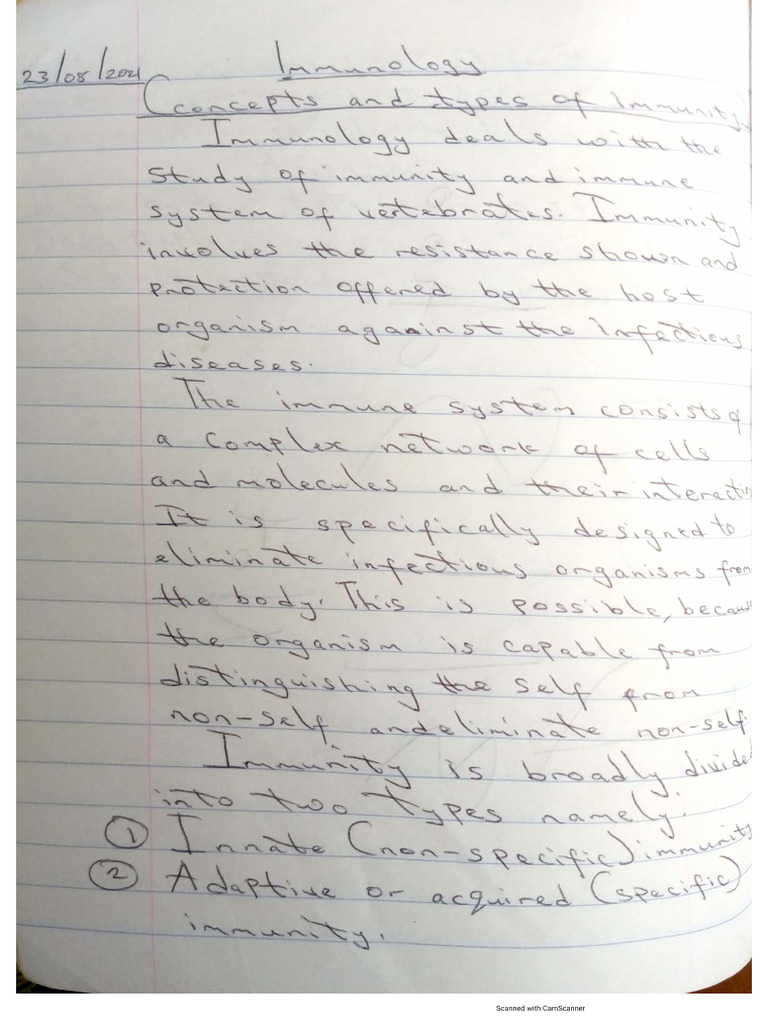 Immunology
23/08/2021
(concepts and types of immunity)
Immunology deals with the
study of immunity and immune
system of vertebrates. Immunity
involves the resistance shown and
protection offered by the host
organism against the infectious
diseases.
The immune system consists of
a complex network of cells
and molecules and their interacti
It is specifically designed to
eliminate infectious organisms from
the body. This is possible, because
the organism is capable from
distinguishing the self from
non-self and eliminate non-self.
Immunity is broadly divided
into two types namely.
① Innate (non-specific) immunity
② Adaptive or acquired (specific)
immunity.
Scanned with CamScanner